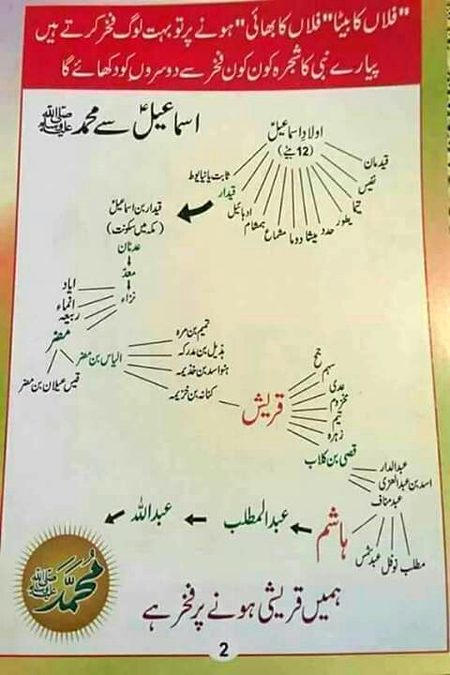 "فلاں کا بیٹا" "فلاں کا بھائی" ہونے پر تو بہت لوگ فخر کرتے ہیں
پیارے نبی کا شجرہ کون کون فخر سے دوسروں کو دکھائے گا
اسماعیلؑ سے محمد ﷺ
اولادِ اسماعیلؑ
(12 بیٹے)
قیدمان
نفیس
تیما
یطور
حدد
میشا
دوما
مشماع
ہمشام
ادبائیل
قیدار
ثابت یا نیابوط
قیدار بن اسماعیلؑ
(مکہ میں سکونت)
عدنان
معد
نزاء
ایاد
انماء
ربیعہ
مضر
الیاس بن مضر
قیس عیلان بن مضر
تمیم بن مرہ
ہذیل بن مدرکہ
بنو اسد بن خذیمہ
کنانہ بن خزیمہ
قریش
جمح
سہم
عدی
مخزوم
تیم
زہرہ
قصی بن کلاب
عبدالدار
اسد بن عبدالعزی
عبد مناف
مطلب
نوفل
عبد شمس
ہاشم
عبدالمطلب
عبداللہ
محمدؐ ﷺ
ہمیں قریشی ہونے پر فخر ہے
2